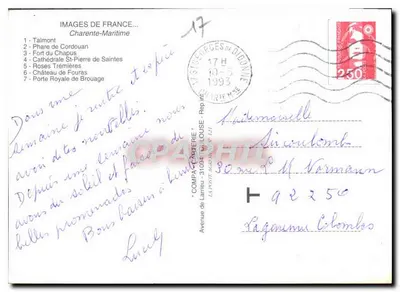 IMAGES DE FRANCE...
Charente-Maritime
1 - Talmont
2 - Phare de Cordouan
3 - Fort du Chapus
4 - Cathédrale St-Pierre de Saintes
5 - Roses Trémières
6 - Château de Fouras
7 - Porte Royale de Brouage
17
ST GEORGES DE DIDONNE
17 H
1993
2,50
Dans une
semaine je rentre et espère
avoir de tes nouvelles.
Depuis une semaine nous
avons du soleil et faisons de
belles promenades
Bons baisers
Lucette
"COMPA CARTERIE"
Avenue de Larrieu - 31094 TOULOUSE
Mademoiselle
30 rue R M Normann
T 92250
La Garenne Colombes